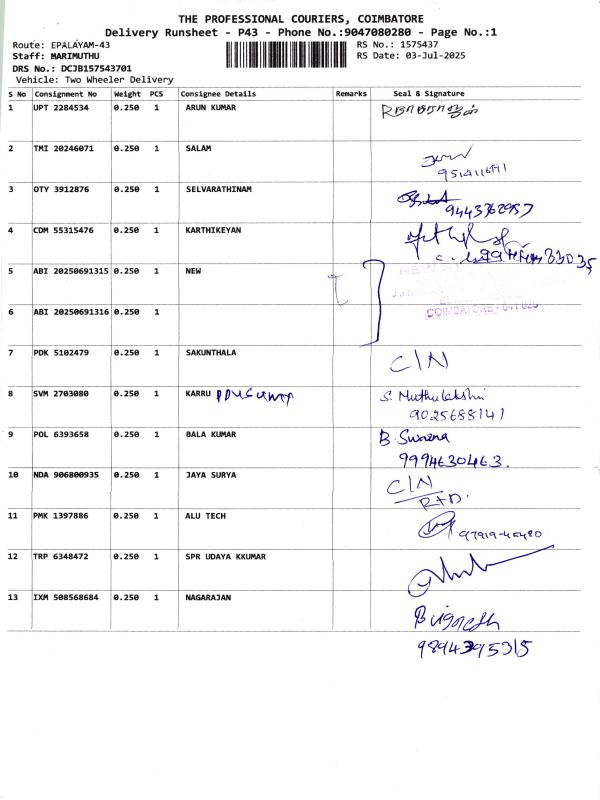 THE PROFESSIONAL COURIERS, COIMBATORE
Delivery Runsheet - P43 - Phone No.:9047080280 - Page No.:1
Route: EPALAYAM-43 RS No.: 1575437
Staff: MARIMUTHU RS Date: 03-Jul-2025
DRS No.: DCJB157543701
Vehicle: Two Wheeler Delivery
S No Consignment No Weight PCS Consignee Details Remarks Seal & Signature
1 UPT 2284534 0.250 1 ARUN KUMAR
2 TMI 20246071 0.250 1 SALAM
3 OTY 3912876 0.250 1 SELVARATHINAM
9443762957
4 CDM 55315476 0.250 1 KARTHIKEYAN
5 ABI 20250691315 0.250 1 NEW
6 ABI 20250691316 0.250 1
COIMBATORE
7 PDK 5102479 0.250 1 SAKUNTHALA C/N
8 SVM 2703080 0.250 1 KARRU S. Muthulakshmi
9025688141
9 POL 6393658 0.250 1 BALA KUMAR B. Swarna
9994630463.
10 NDA 906800935 0.250 1 JAYA SURYA C/N
11 PMK 1397886 0.250 1 ALU TECH
12 TRP 6348472 0.250 1 SPR UDAYA KKUMAR
13 IXM 508568684 0.250 1 NAGARAJAN
9894395315